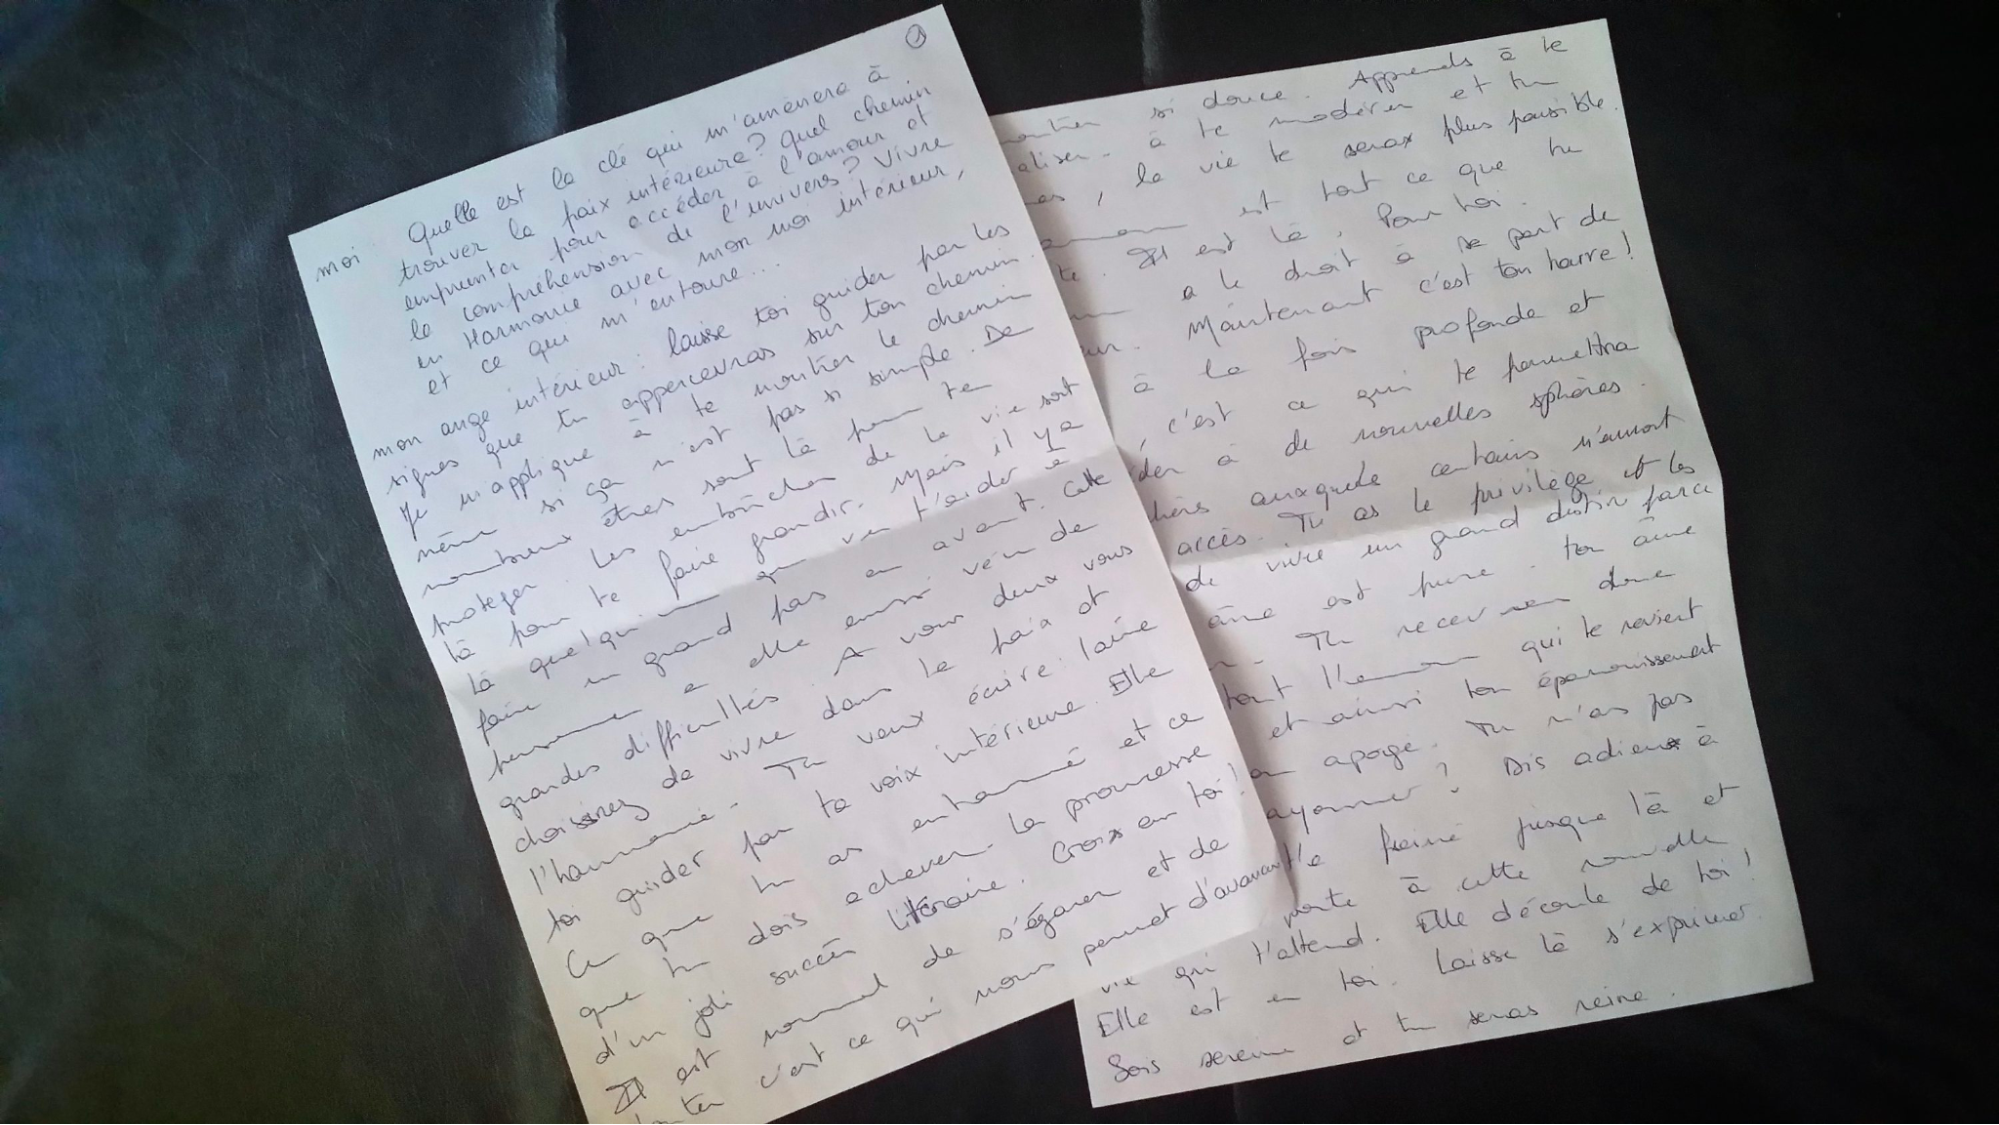 ①
moi : Quelle est la clé qui m'amènera à
trouver la paix intérieure ? Quel chemin
emprunter pour accéder à l'amour et
la compréhension de l'univers ? Vivre
en Harmonie avec mon moi intérieur,
et ce qui m'entoure...
mon ange intérieur : laisse toi guider par les
signes que tu appercevras sur ton chemin.
Je m'applique à te montrer le chemin
même si ça n'est pas si simple. De
nombreux êtres sont là pour te
proteger. Les embûches de la vie sont
là pour te faire grandir. Mais il y a
là quelqu'un qui veut t'aider à
faire un grand pas en avant. Cette
personne a elle aussi vécu de
grandes difficultés. A vous deux vous
choisirez de vivre dans la paix et
l'harmonie. Tu veux écrire : laisse
toi guider par ta voix intérieure. Elle
Ce que tu as entamé et ce
que tu dois achever. la promesse
d'un joli succès littéraire. Crois en toi !
Il est normal de s'égarer et de
douter c'est ce qui nous permet d'avancer
si douce. Apprends à te
à te modérer et tu
, la vie te seras plus paisible.
est tout ce que tu
Il est là. Pour toi.
a le droit à sa part de
Maintenant c'est ton havre !
à la fois profonde et
, c'est ce qui te permettra
à de nouvelles sphères.
auxquels certains n'auront
accès. Tu as le privilège et les
de vivre un grand destin parce
âme est pure. ton âme
Tu recevras donc
tout l'amour qui te revient
et ainsi ton épanouissement
apogé. Tu n'as pas
? Dis adieu à
freiné jusque là et
porte à cette nouvelle
vie qui t'attend. Elle découle de toi !
Elle est en toi. Laisse là s'exprimer.
Sois sereine et tu seras reine.